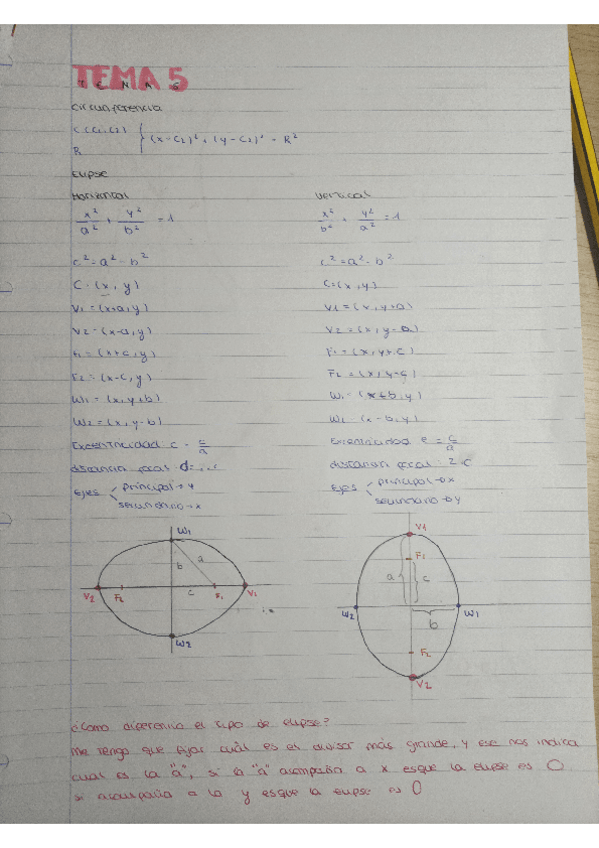 TEMA 5
CONICAS
circunferencia
C(C1,C2)
R
(x-C2)² + (y-C2)² = R²
Elipse
Horizontal
x²/a² + y²/b² = 1
c²=a²-b²
C=(x,y)
V1=(x+a,y)
V2=(x-a,y)
F1=(x+c,y)
F2=(x-c,y)
W1=(x,y+b)
W2=(x,y-b)
Excentricidad c = c/a
distancia focal d=
Ejes
principal→y
secundario→x
Vertical
x²/b² + y²/a² = 1
c²=a²-b²
C=(x,y)
V1=(x,y+a)
V2=(x,y-a)
F1=(x,y+c)
F2=(x,y-c)
W1=(x+b,y)
W2=(x-b,y)
Excentricidad e = c/a
distancia focal: 2·c
Ejes
principal→x
secundario→y
W1
b
a
c
V2
F2
F1
V1
W2
V1
F1
a
c
W2
W1
b
F2
V2
¿Como diferencio el tipo de elipse?
Me tengo que fijar cuál es el divisor más grande, y ese nos indica
cual es la "a", si la "a" acompaña a x esque la elipse es
si acompaña a la y esque la elipse es